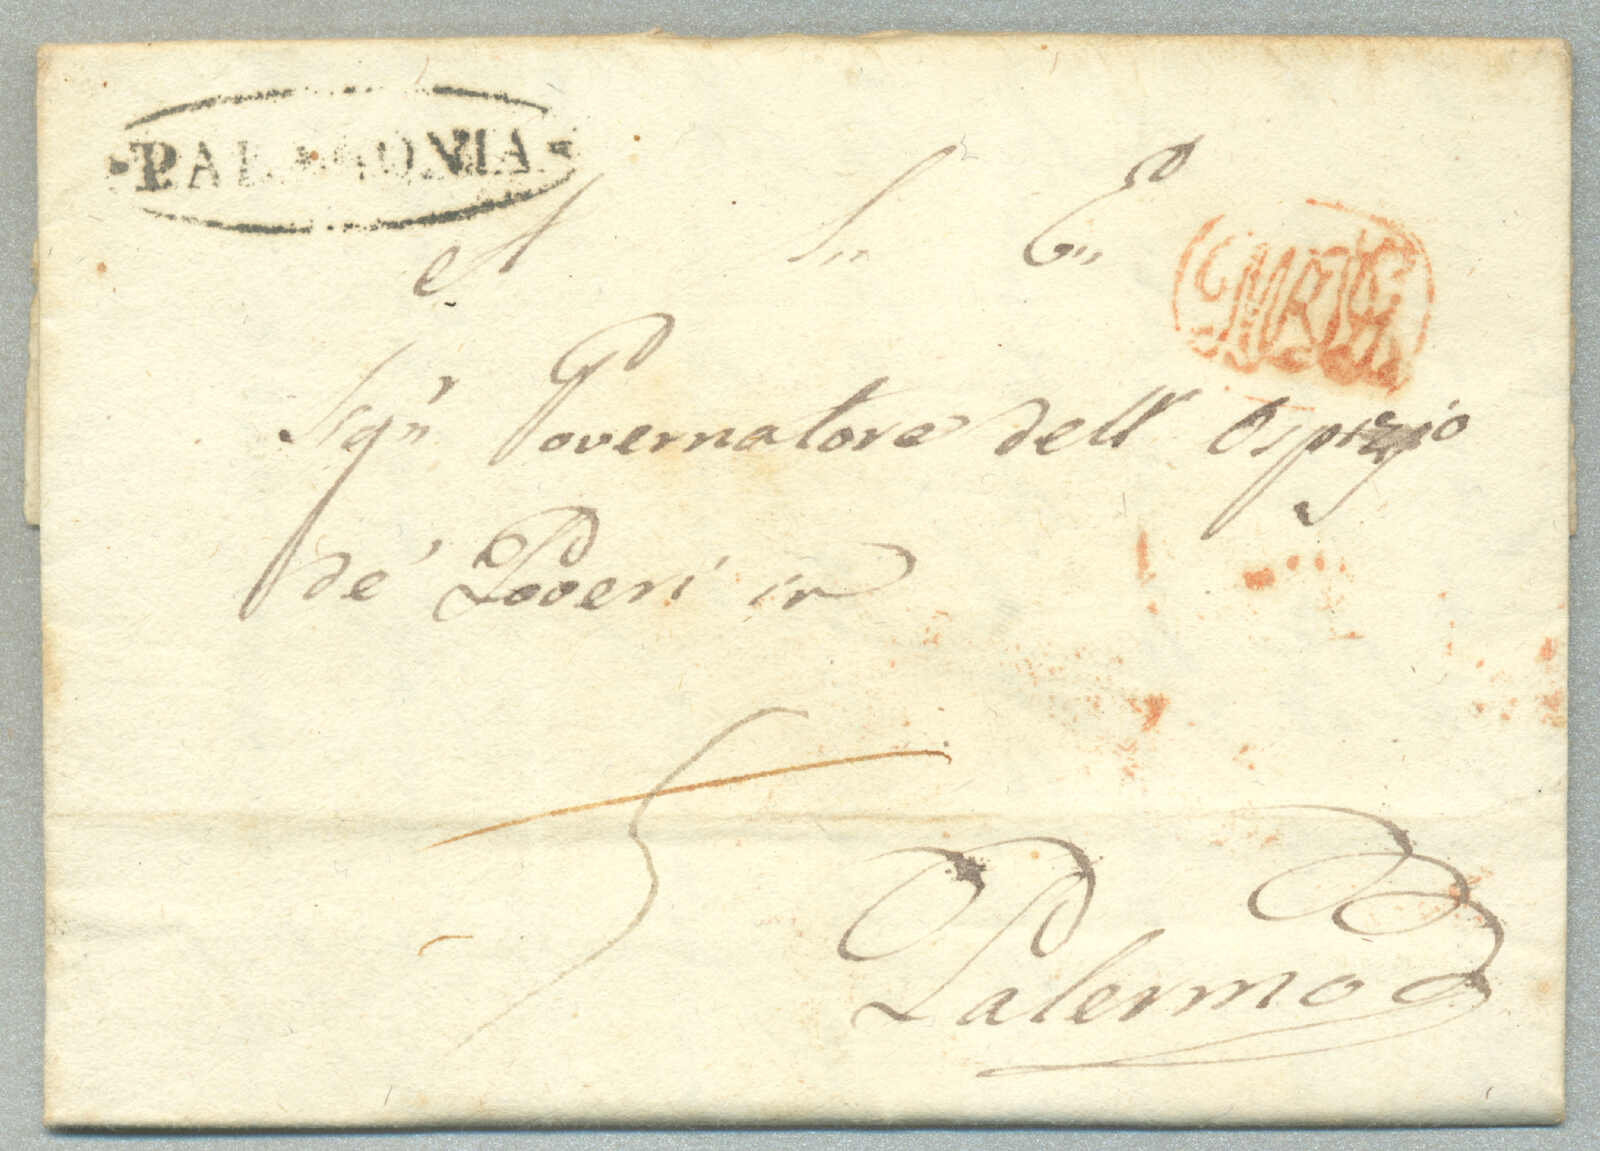 PALAGONIA
A Sua Ecc
Sigr Governatore dell' Ospizio
de' Poveri in
5
Palermo